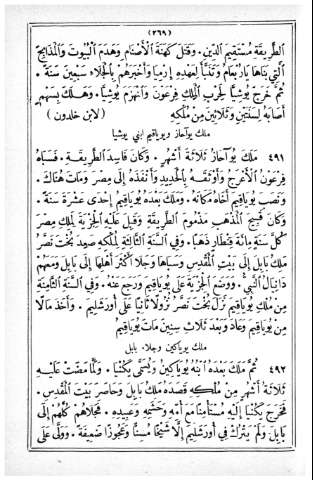 (٢٦٩)
الطَّرِيقَةِ مُسْتَقِيمَ الدِّينِ. وَقَتَلَ كَهَنَةَ الْأَصْنَامِ وَهَدَمَ الْبُيُوتَ وَالْمَذَابِحَ
الَّتِي بَنَاهَا يَارُبْعَامُ وَتَنَبَّأَ لِعَهْدِهِ إِرْمِيَا وَأَخْبَرَهُمْ بِالْجَلَاءِ سَبْعِينَ سَنَةً.
ثُمَّ خَرَجَ يُوشِيَّا لِحَرْبِ الْمَلِكِ فِرْعَوْنَ وَانْهَزَمَ يُوشِيَّا. وَهَلَكَ بِسَهْمٍ
أَصَابَهُ لِسَنَتَيْنِ وَثَلَاثِينَ مِنْ مُلْكِهِ (لابن خلدون)
ملك يوآحاز ويوياقيم ابني يوشيا
٤٩١ مَلَكَ يُوآحَازُ ثَلَاثَةَ أَشْهُرٍ. وَكَانَ فَاسِدَ الطَّرِيقَةِ. فَسَبَاهُ
فِرْعَوْنُ الْأَعْرَجُ وَأَوْثَقَهُ بِالْحَدِيدِ وَأَنْفَذَهُ إِلَى مِصْرَ وَمَاتَ هُنَاكَ.
وَنَصَبَ يُويَاقِيمَ أَخَاهُ مَكَانَهُ. وَمَلَكَ بَعْدَهُ يُويَاقِيمُ إِحْدَى عَشْرَةَ سَنَةً.
وَكَانَ قَبِيحَ الْمَذْهَبِ مَذْمُومَ الطَّرِيقَةِ وَقَبِلَ عَلَيْهِ الْجِزْيَةَ لِمَلِكِ مِصْرَ
كُلَّ سَنَةٍ مِائَةَ قِنْطَارٍ ذَهَبًا. وَفِي السَّنَةِ الثَّالِثَةِ لِمُلْكِهِ صَعِدَ بُخْتَ نَصَّرُ
مَلِكُ بَابِلَ إِلَى بَيْتِ الْمَقْدِسِ وَسَبَاهَا وَجَلَا أَكْثَرَ أَهْلِهَا إِلَى بَابِلَ وَمَعَهُمْ
دَانِيَالُ النَّبِيُّ. وَوَضَعَ الْجِزْيَةَ عَلَى يُويَاقِيمَ وَرَجَعَ عَنْهُ. وَفِي السَّنَةِ الثَّامِنَةِ
مِنْ مُلْكِ يُويَاقِيمَ نَزَلَ بُخْتَ نَصَّرُ نُزُولًا ثَانِيًا عَلَى أُورَشَلِيمَ. وَأَخَذَ مَالًا
مِنْ يُويَاقِيمَ وَعَادَ وَبَعْدَ ثَلَاثِ سِنِينَ مَاتَ يُويَاقِيمُ
ملك يوياكين وجلاء بابل
٤٩٢ ثُمَّ مَلَكَ بَعْدَهُ ابْنُهُ يُويَاكِينُ وَيُسَمَّى يَكُنْيَا. وَلَمَّا مَضَتْ عَلَيْهِ
ثَلَاثَةُ أَشْهُرٍ مِنْ مُلْكِهِ قَصَدَهُ مَلِكُ بَابِلَ وَحَاصَرَ بَيْتَ الْمَقْدِسِ.
فَخَرَجَ يَكُنْيَا إِلَيْهِ مُسْتَأْمِنًا مَعَ أُمِّهِ وَحَشَمِهِ وَعَبِيدِهِ. فَجَلَاهُمْ كُلَّهُمْ إِلَى
بَابِلَ وَلَمْ يَتْرُكْ فِي أُورَشَلِيمَ إِلَّا شَيْخًا مُسِنًّا وَعَجُوزًا ضَعِيفَةً. وَوَلَّى عَلَى